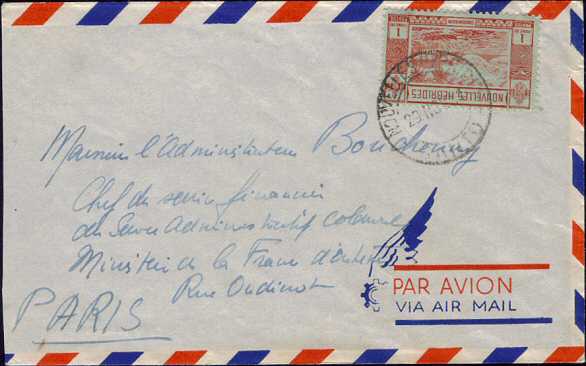 1 1
NOUVELLES HEBRIDES
Monsieur l'Administrateur
Chef du service financier
du Service Administratif colonial
Ministère de la France d'outre
Rue Oudinot
PARIS
PAR AVION
VIA AIR MAIL